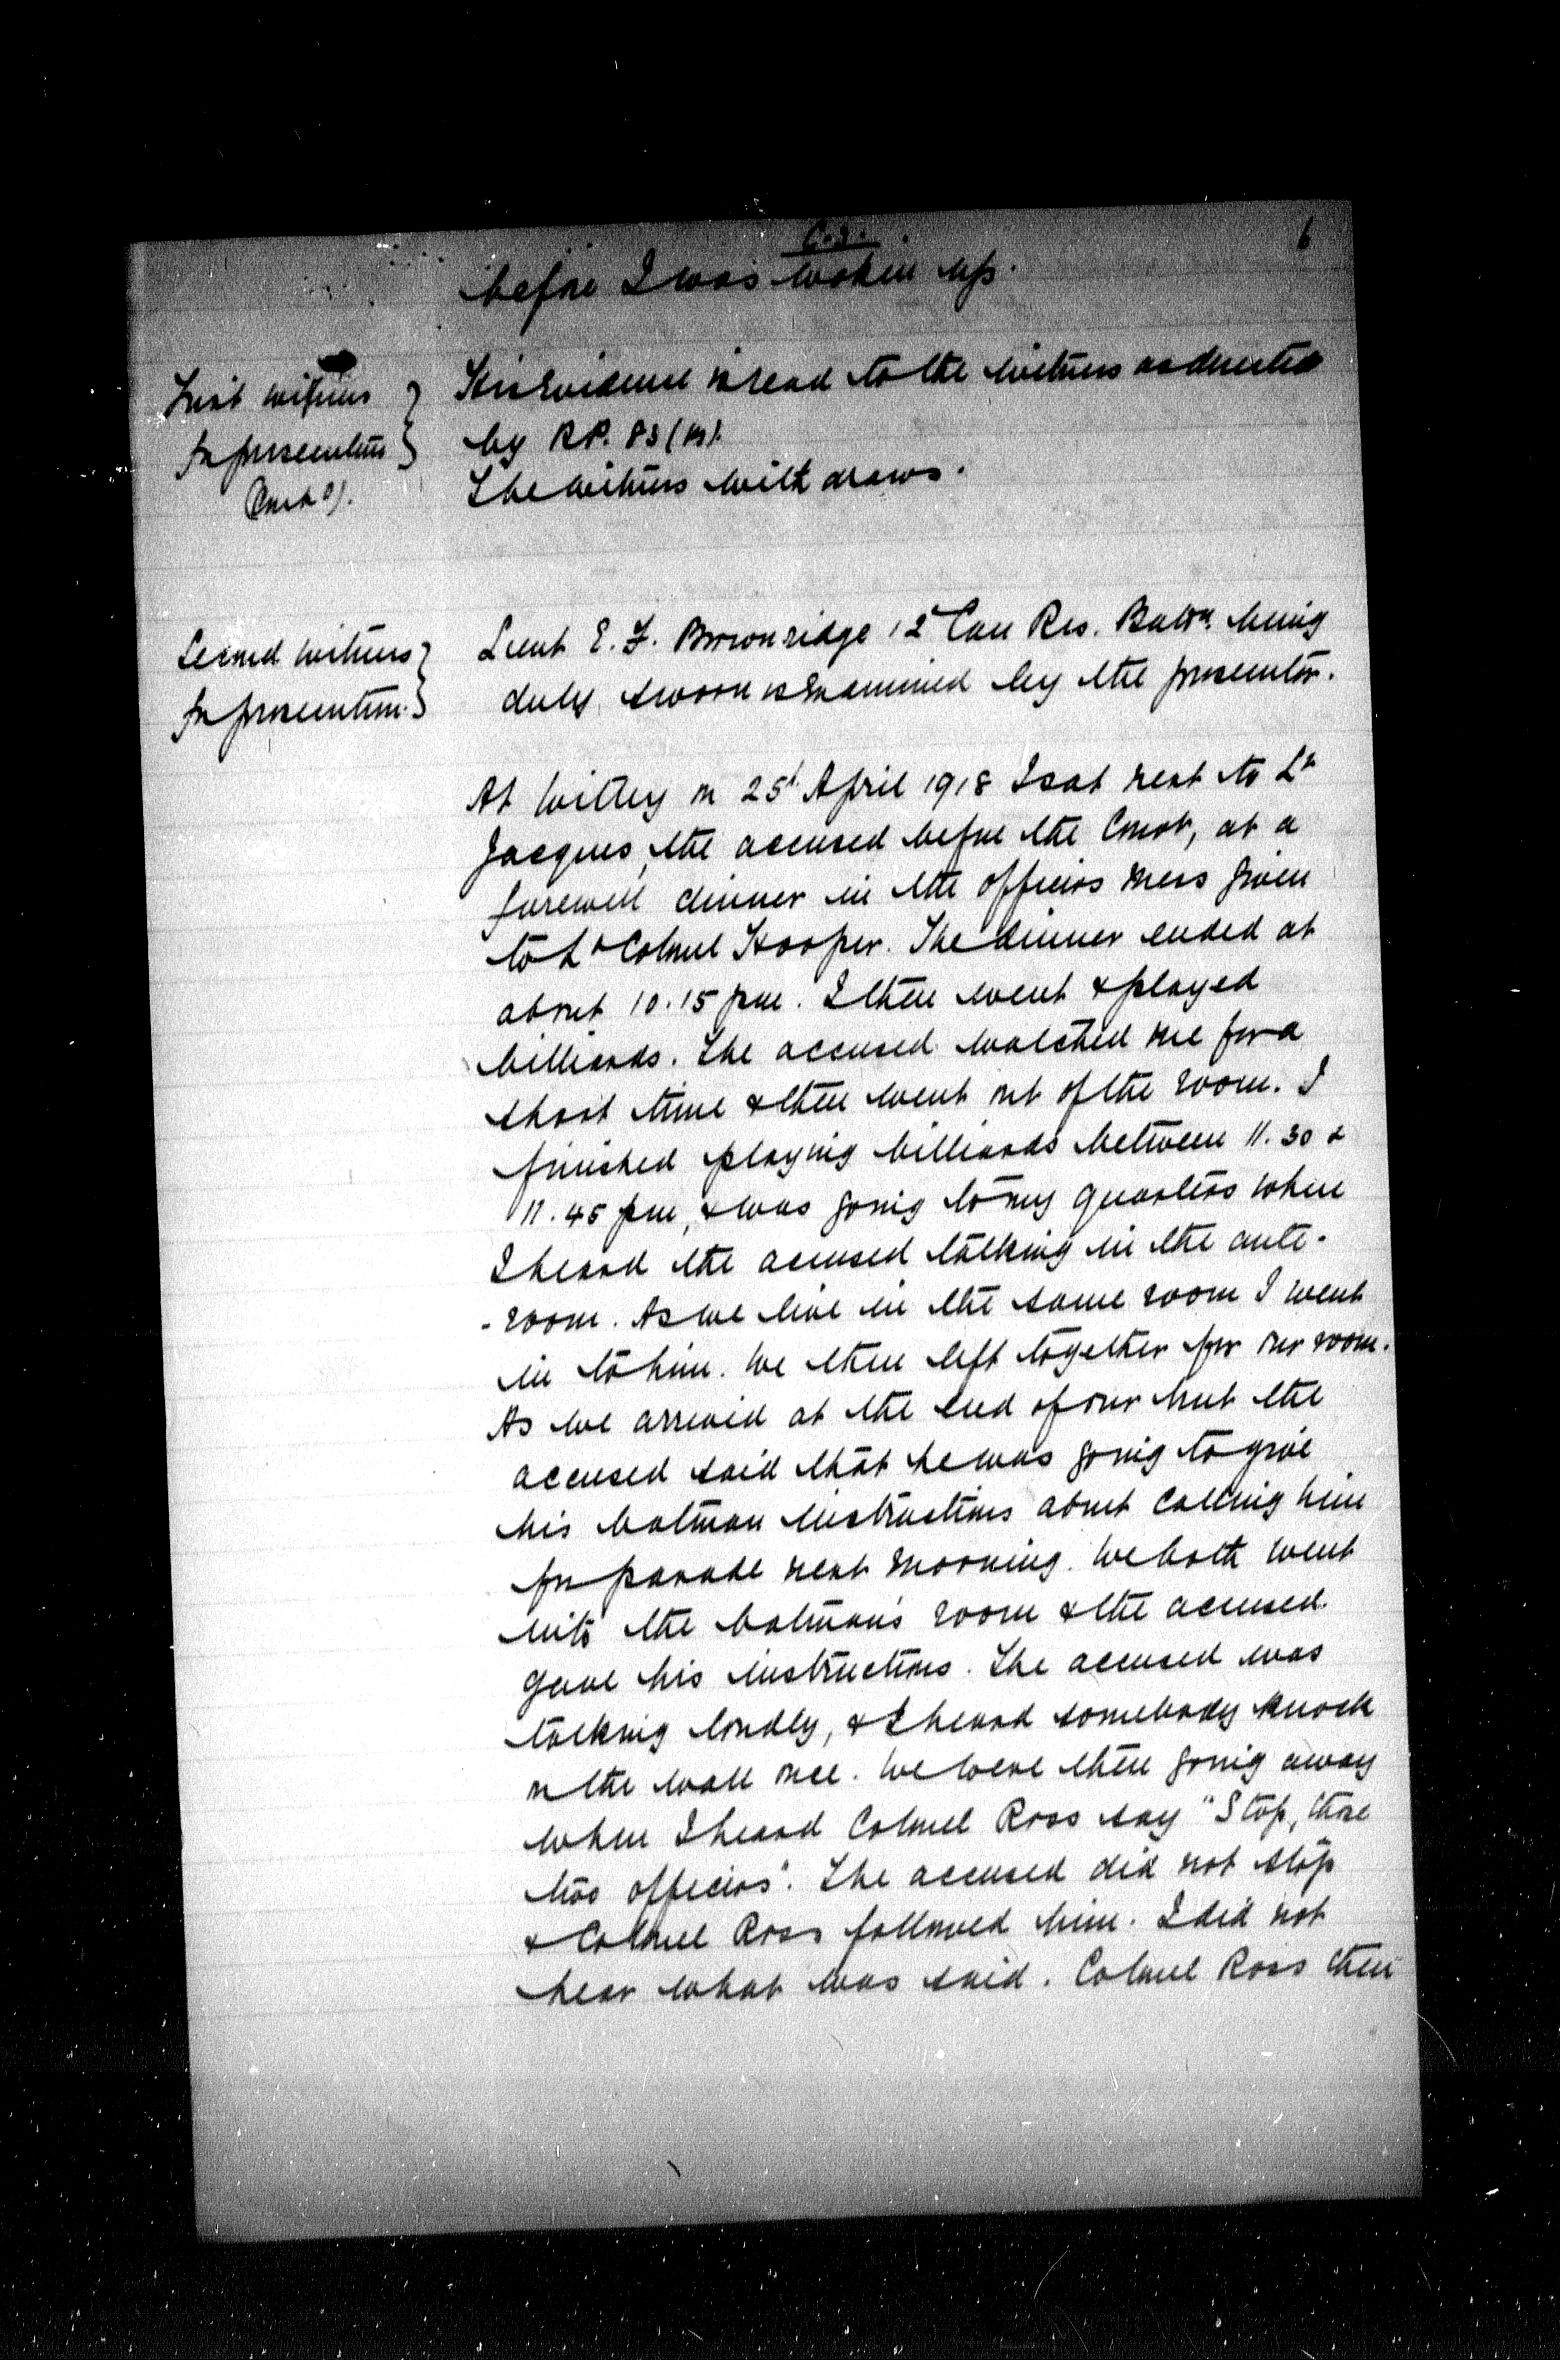 C.3. 6
before I was woken up.
First witness } His evidence is read to the witness as directed
for prosecution } by R.P. 83 (B).
(Contd). The witness withdraws.
Second witness } Lieut E. F. Brownridge 12 Can Res. Battn. being
for prosecution. } duly sworn is examined by the prosecutor.
At Witley on 25t April 1918 I sat next to Lt
Jacques, the accused before the Court, at a
farewell dinner in the officers mess given
to Lt Colonel Hooper. The dinner ended at
about 10.15 pm. I then went & played
billiards. The accused watched me for a
short time & then went out of the room. I
finished playing billiards between 11.30 &
11.45 pm, & was going to my quarters when
I heard the accused talking in the ante-
-room. As we live in the same room I went
in to him. We then left together for our room.
As we arrived at the end of our hut the
accused said that he was going to give
his batman instructions about calling him
for parade next morning. We both went
into the batman's room & the accused
gave his instructions. The accused was
talking loudly, & I heard somebody knock
on the wall once. We were then going away
when I heard Colonel Ross say "Stop, those
two officers". The accused did not stop
& Colonel Ross followed him. I did not
hear what was said. Colonel Ross then